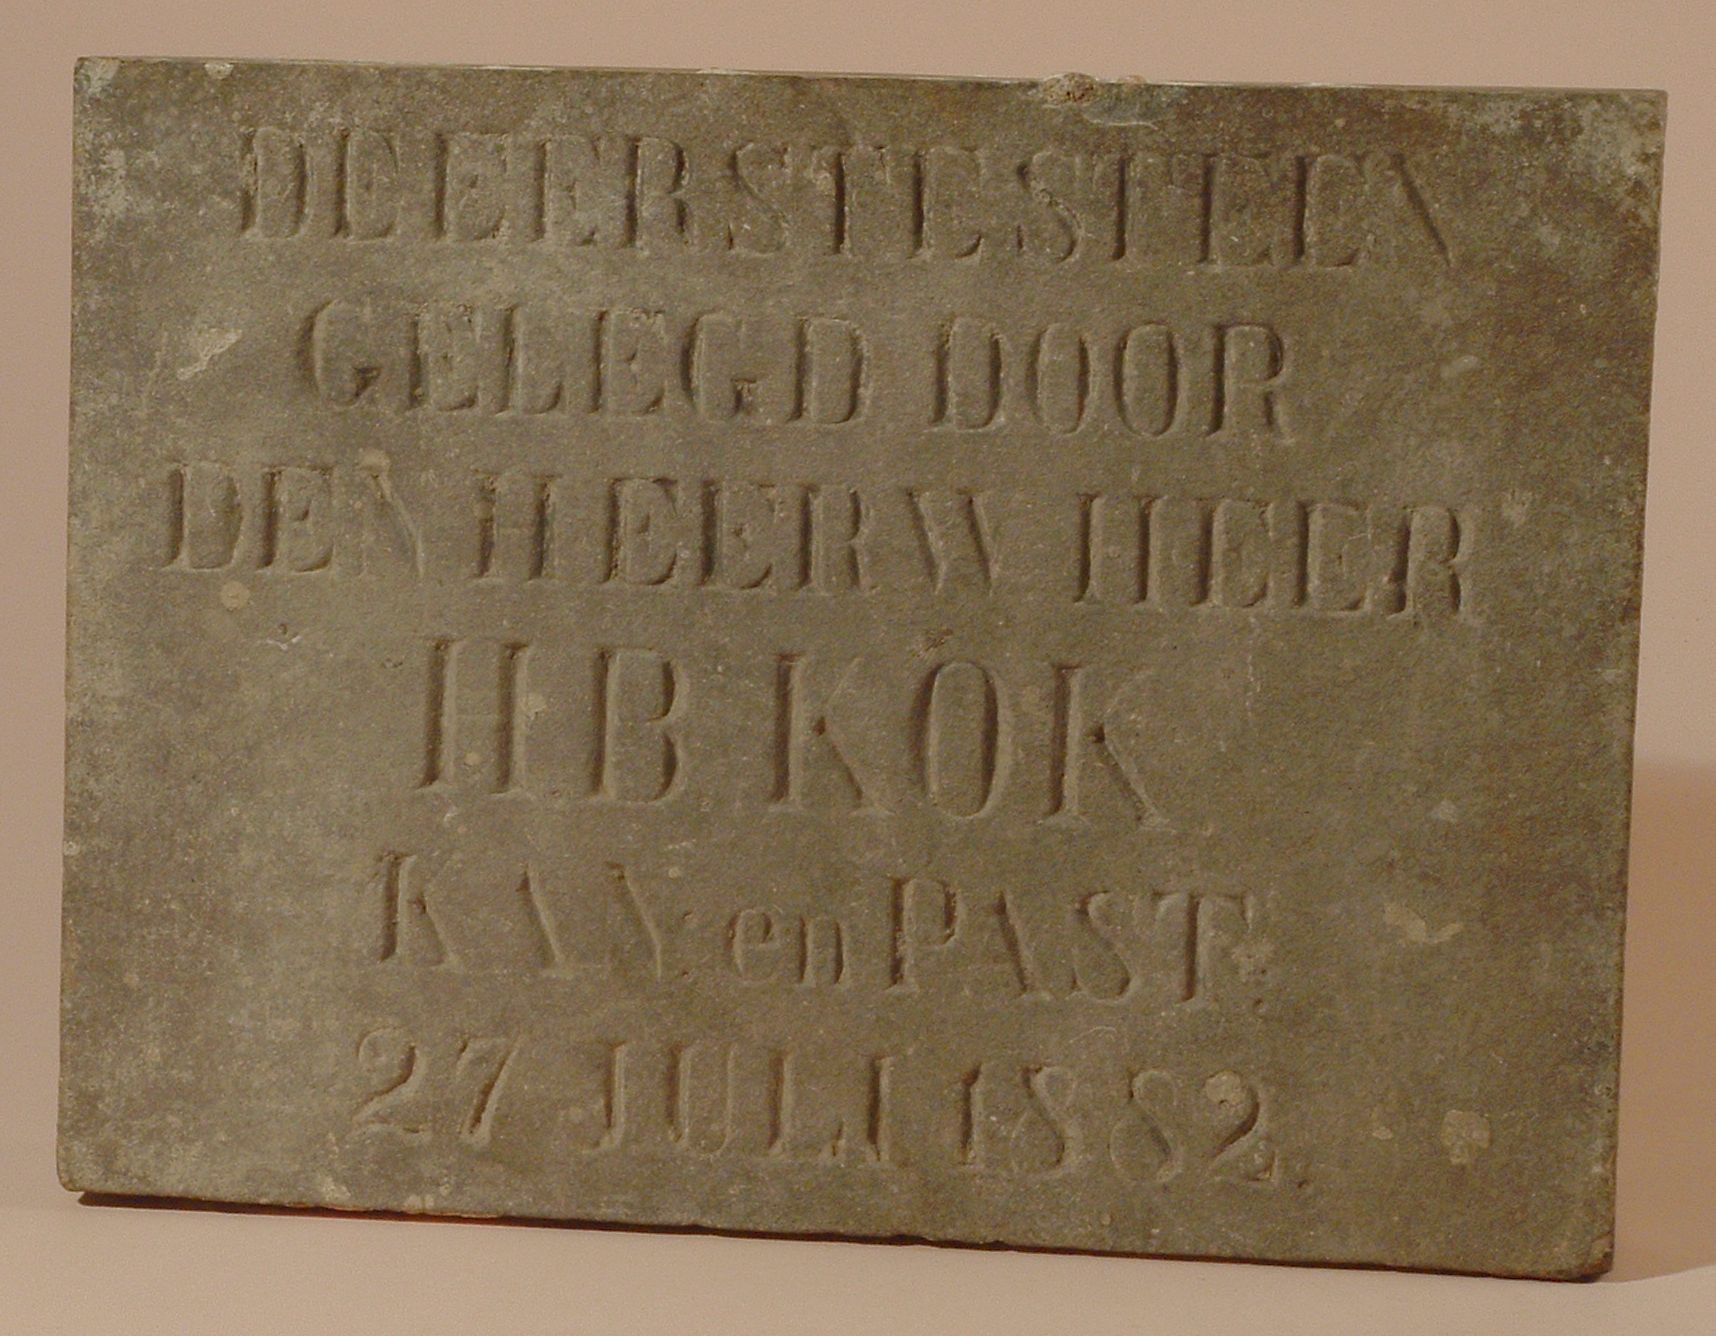 DE EERSTE STEEN
GELEGD DOOR
DEN HEERW HEER
H B KOK
KAN en PAST.
27 JULI 1882.